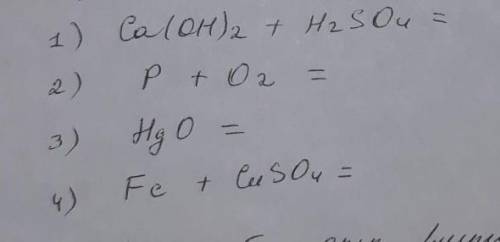 1) Ca(OH)2 + H2SO4 =
2) P + O2 =
3) HgO =
4) Fe + CuSO4 =